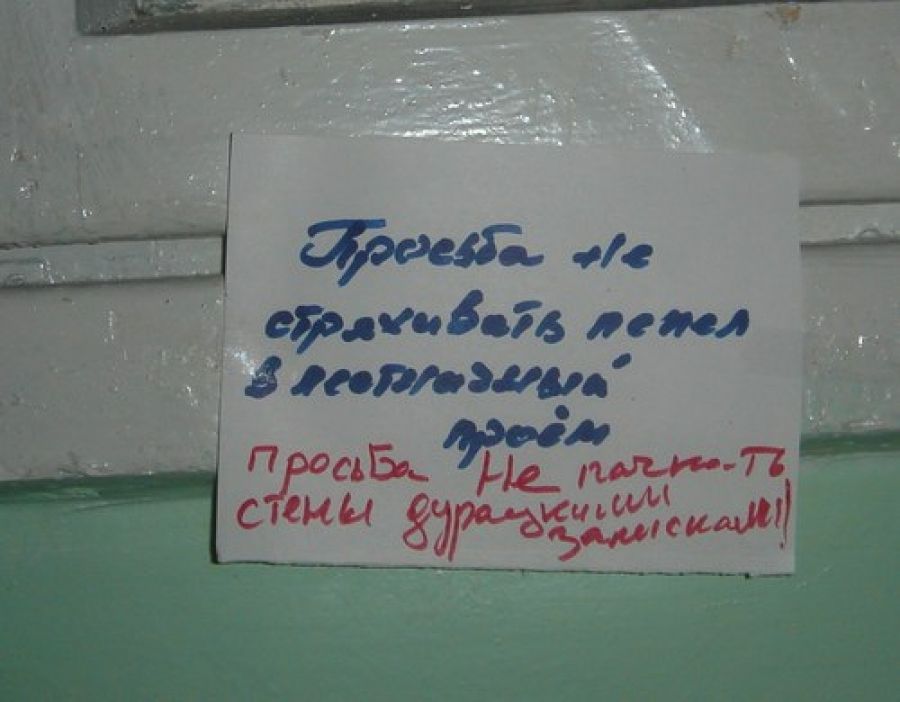 Просьба не
стряхивать пепел
в лестничный
проём
Просьба Не пачкать
стены дурацкими
записками!!